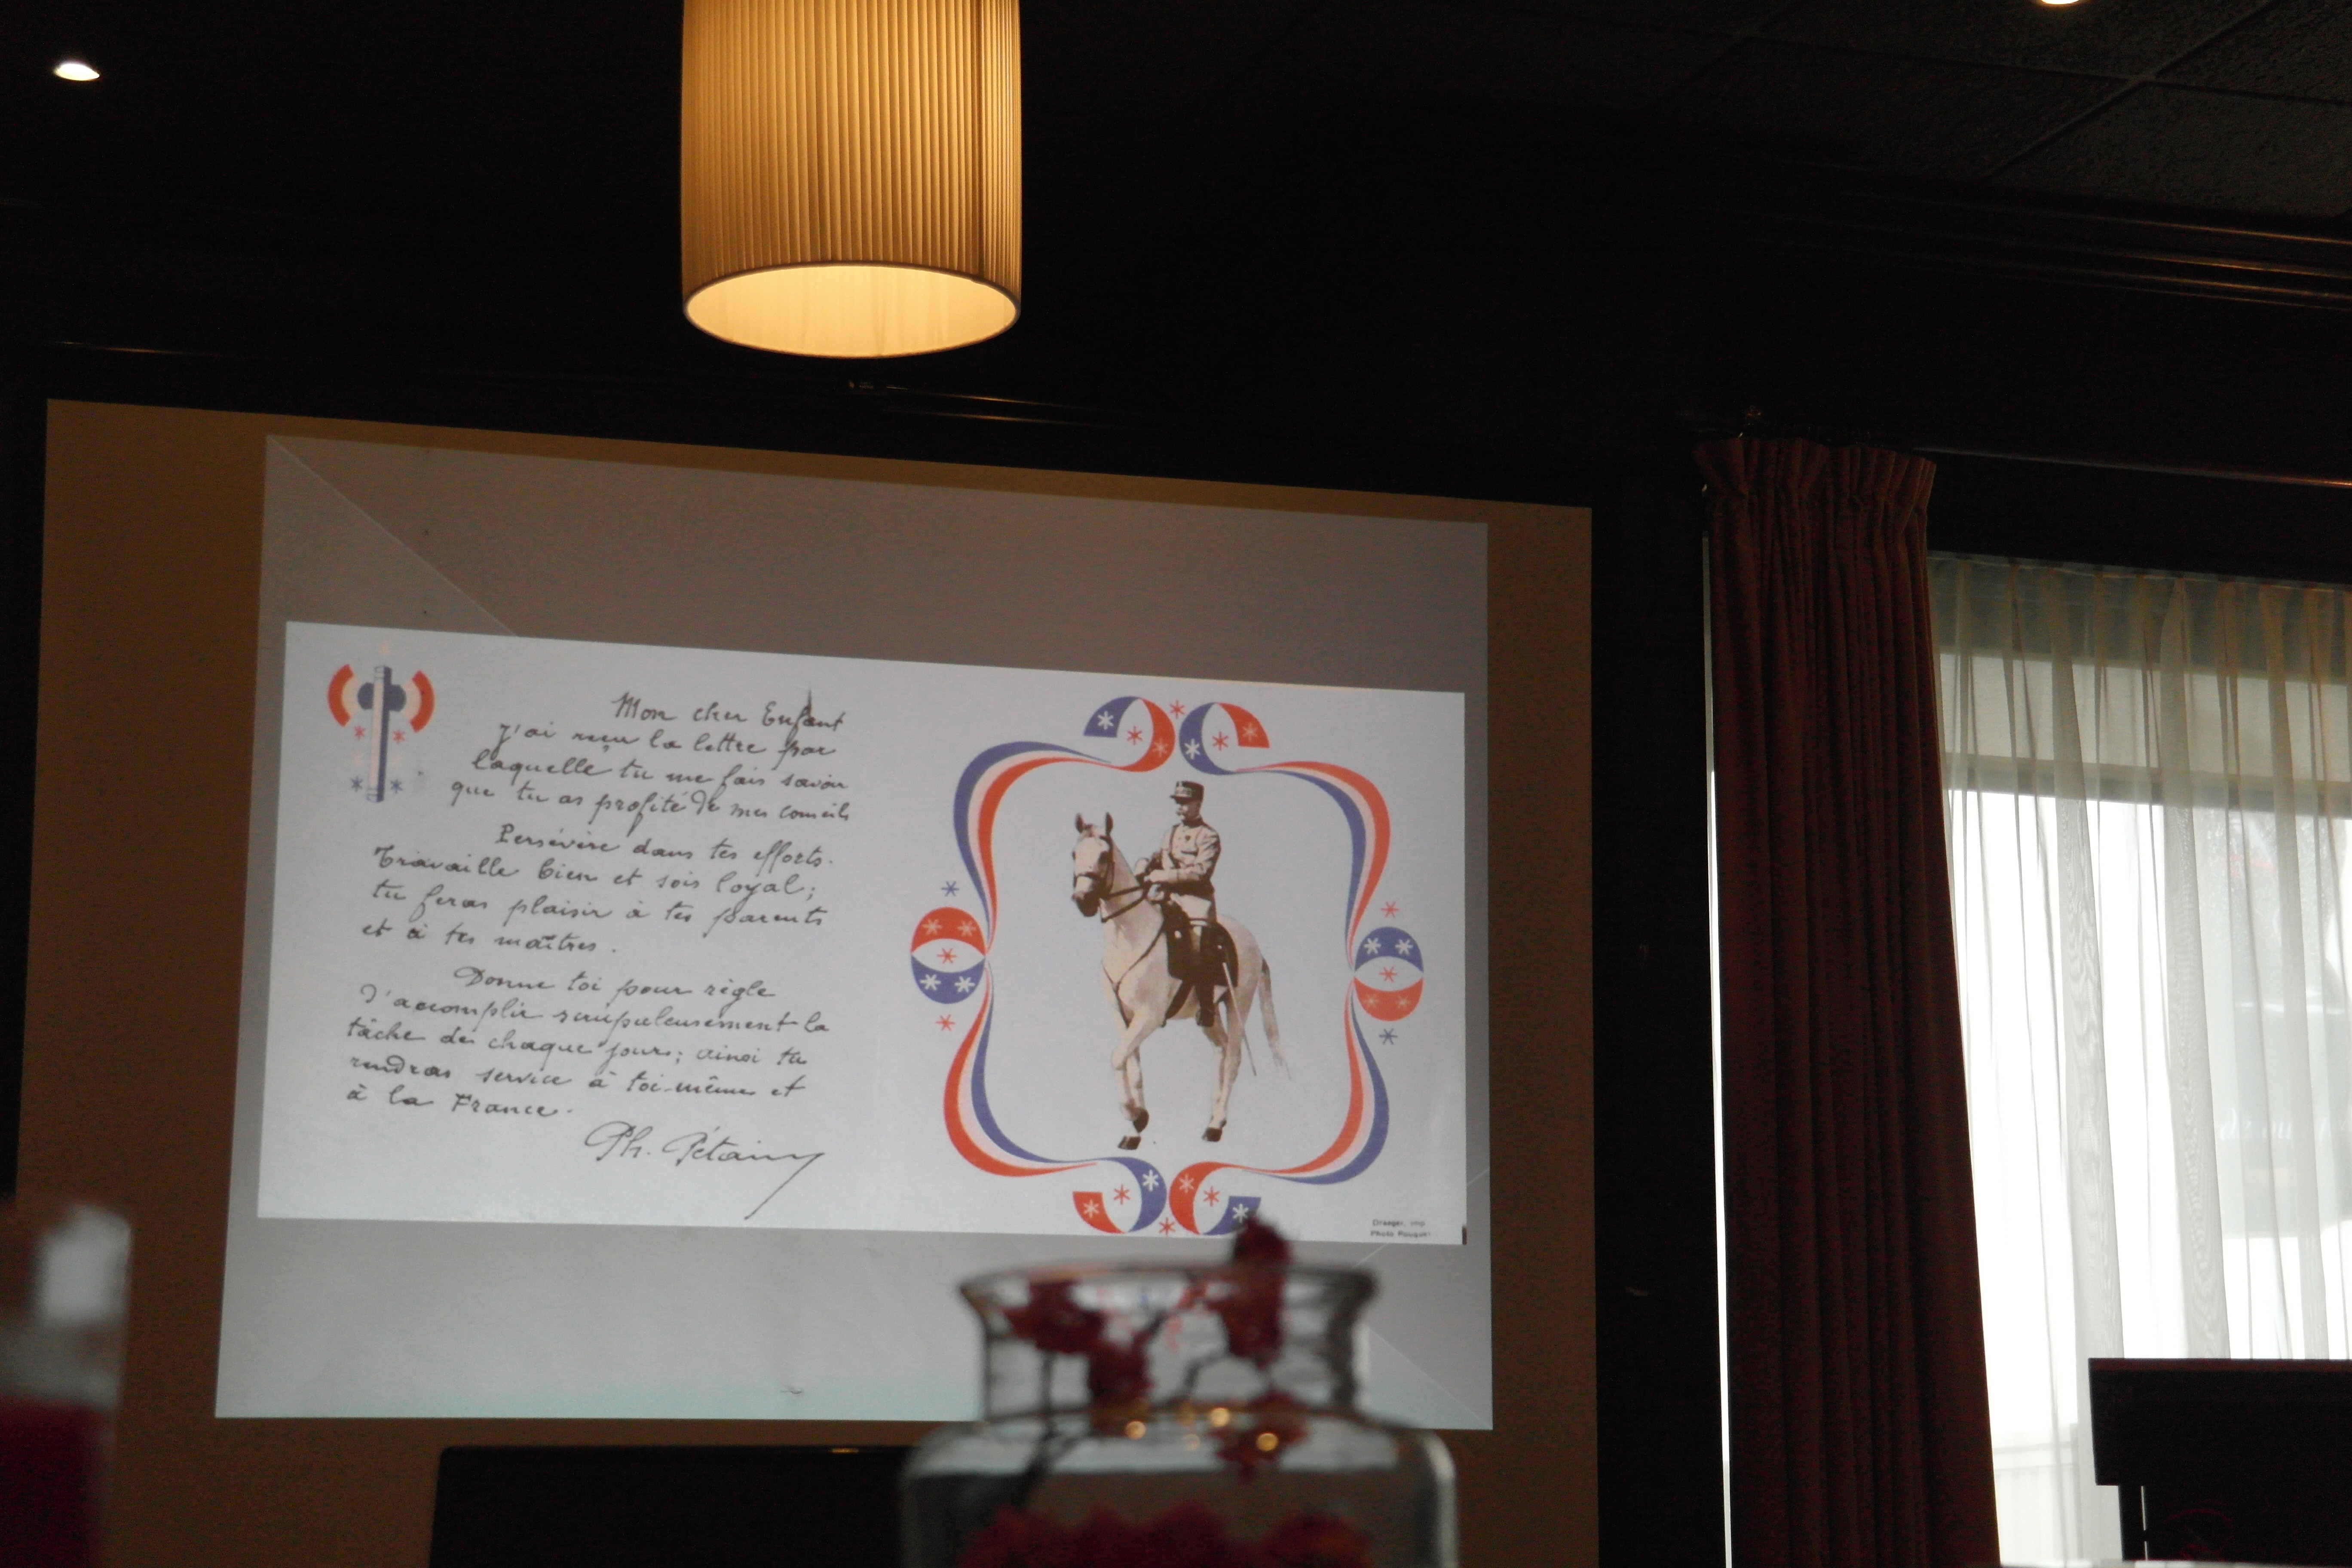 Mon cher Enfant
j'ai reçu la lettre par
laquelle tu me fais savoir
que tu as profité de mes conseils
Persévère dans tes efforts.
Travaille bien et sois loyal;
tu feras plaisir à tes parents
et à tes maîtres.
Donne toi pour règle
d'accomplir scrupuleusement la
tâche de chaque jour; ainsi tu
rendras service à toi-même et
à la France.
Ph. Pétain
Draeger, imp
Photo